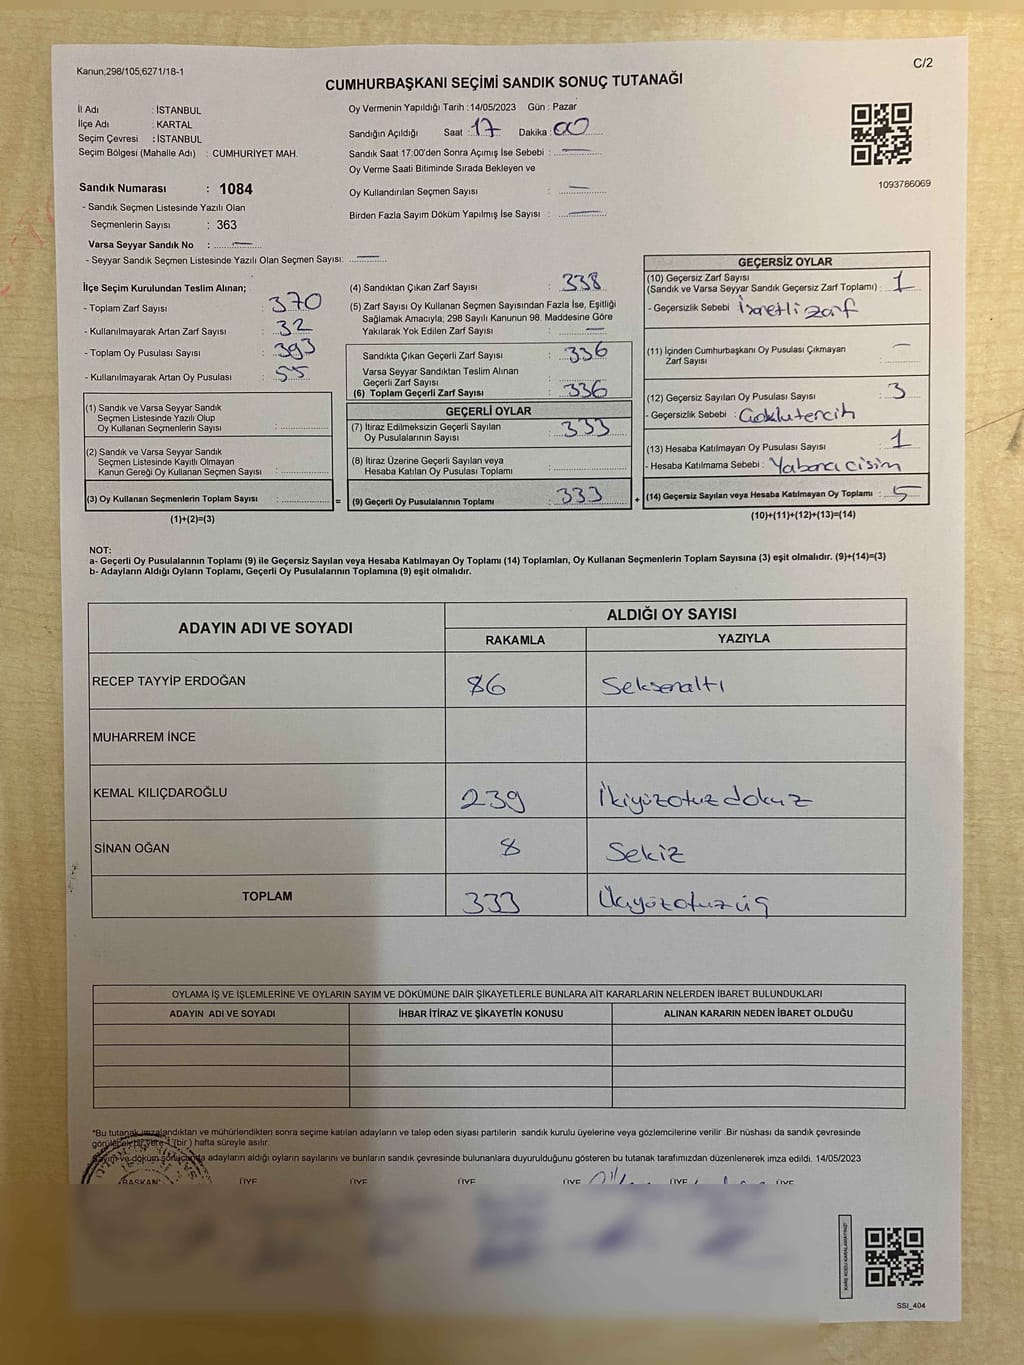 Kanun;298/105;6271/18-1
C/2
CUMHURBAŞKANI SEÇİMİ SANDIK SONUÇ TUTANAĞI
İl Adı : İSTANBUL
İlçe Adı : KARTAL
Seçim Çevresi : İSTANBUL
Seçim Bölgesi (Mahalle Adı) : CUMHURİYET MAH.
Sandık Numarası : 1084
- Sandık Seçmen Listesinde Yazılı Olan
Seçmenlerin Sayısı : 363
Varsa Seyyar Sandık No :
- Seyyar Sandık Seçmen Listesinde Yazılı Olan Seçmen Sayısı:
Oy Vermenin Yapıldığı Tarih :14/05/2023 Gün : Pazar
Sandığın Açıldığı Saat : 17 Dakika : 00
Sandık Saat 17:00'den Sonra Açımış İse Sebebi :
Oy Verme Saati Bitiminde Sırada Bekleyen ve
Oy Kullandırılan Seçmen Sayısı :
Birden Fazla Sayım Döküm Yapılmış İse Sayısı :
1093786069
İlçe Seçim Kurulundan Teslim Alınan;
- Toplam Zarf Sayısı : 370
- Kullanılmayarak Artan Zarf Sayısı : 32
- Toplam Oy Pusulası Sayısı : 393
- Kullanılmayarak Artan Oy Pusulası : 55
(1) Sandık ve Varsa Seyyar Sandık
Seçmen Listesinde Yazılı Olup
Oy Kullanan Seçmenlerin Sayısı :
(2) Sandık ve Varsa Seyyar Sandık
Seçmen Listesinde Kayıtlı Olmayan
Kanun Gereği Oy Kullanan Seçmen Sayısı :
(3) Oy Kullanan Seçmenlerin Toplam Sayısı : =
(1)+(2)=(3)
(4) Sandıktan Çıkan Zarf Sayısı : 338
(5) Zarf Sayısı Oy Kullanan Seçmen Sayısından Fazla İse, Eşitliği
Sağlamak Amacıyla; 298 Sayılı Kanunun 98. Maddesine Göre
Yakılarak Yok Edilen Zarf Sayısı :
Sandıkta Çıkan Geçerli Zarf Sayısı : 336
Varsa Seyyar Sandıktan Teslim Alınan
Geçerli Zarf Sayısı :
(6) Toplam Geçerli Zarf Sayısı : 336
GEÇERLİ OYLAR
(7) İtiraz Edilmeksizin Geçerli Sayılan
Oy Pusulalarının Sayısı : 333
(8) İtiraz Üzerine Geçerli Sayılan veya
Hesaba Katılan Oy Pusulası Toplamı :
(9) Geçerli Oy Pusulalarının Toplamı : 333 +
GEÇERSİZ OYLAR
(10) Geçersiz Zarf Sayısı
(Sandık ve Varsa Seyyar Sandık Geçersiz Zarf Toplamı) : 1
- Geçersizlik Sebebi : İşaretli zarf
(11) İçinden Cumhurbaşkanı Oy Pusulası Çıkmayan
Zarf Sayısı :
(12) Geçersiz Sayılan Oy Pusulası Sayısı : 3
- Geçersizlik Sebebi : Çoklu tercih
(13) Hesaba Katılmayan Oy Pusulası Sayısı : 1
- Hesaba Katılmama Sebebi : Yabancı cisim
(14) Geçersiz Sayılan veya Hesaba Katılmayan Oy Toplamı : 5
(10)+(11)+(12)+(13)=(14)
NOT:
a- Geçerli Oy Pusulalarının Toplamı (9) ile Geçersiz Sayılan veya Hesaba Katılmayan Oy Toplamı (14) Toplamları, Oy Kullanan Seçmenlerin Toplam Sayısına (3) eşit olmalıdır. (9)+(14)=(3)
b- Adayların Aldığı Oyların Toplamı, Geçerli Oy Pusulalarının Toplamına (9) eşit olmalıdır.
ADAYIN ADI VE SOYADI
ALDIĞI OY SAYISI
RAKAMLA YAZIYLA
RECEP TAYYİP ERDOĞAN 86 Seksenaltı
MUHARREM İNCE
KEMAL KILIÇDAROĞLU 239 İkiyüzotuzdokuz
SİNAN OĞAN 8 Sekiz
TOPLAM 333 Üçyüzotuzüç
OYLAMA İŞ VE İŞLEMLERİNE VE OYLARIN SAYIM VE DÖKÜMÜNE DAİR ŞİKAYETLERLE BUNLARA AİT KARARLARIN NELERDEN İBARET BULUNDUKLARI
ADAYIN ADI VE SOYADI İHBAR İTİRAZ VE ŞİKAYETİN KONUSU ALINAN KARARIN NEDEN İBARET OLDUĞU
*Bu tutanak imzalandıktan ve mühürlendikten sonra seçime katılan adayların ve talep eden siyasi partilerin sandık kurulu üyelerine veya gözlemcilerine verilir. Bir nüshası da sandık çevresinde
görülecek bir yere 1 (bir) hafta süreyle asılır.
Sayım ve döküm sonucunda adayların aldığı oyların sayılarını ve bunların sandık çevresinde bulunanlara duyurulduğunu gösteren bu tutanak tarafımızdan düzenlenerek imza edildi. 14/05/2023
BAŞKAN ÜYE ÜYE ÜYE ÜYE ÜYE ÜYE
SSI_404